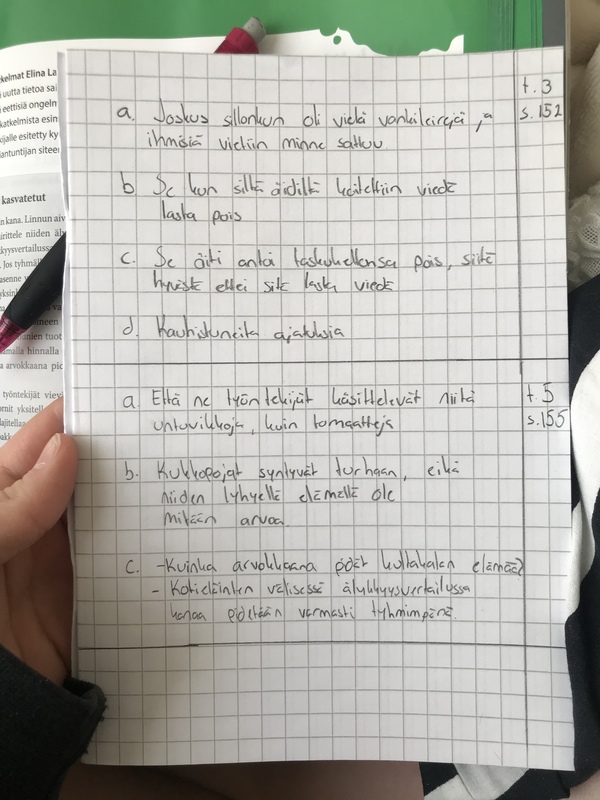 kelmat Elina La
uutta tietoa sai
eettisiä ongeln
katkelmista esin
ijalle esitetty ky
antuntijan siteer
kasvatetut
kana. Linnun aiv
irittele niiden äl
kyysvertailussa
. Jos tyhmäl
asenne v
yksink
ineen
nien tuot
amalla hinnalla
a arvokkaana pid
työntekijät viev
ornit yksitell
lajitellaa
t.3
s.152
a. Joskus sillonkun oli vielä vankileirejä ja
ihmisiä vietiin minne sattuu
b Se kun siltä äidiltä koitettiin viedä
lasta pois
c. Se äiti antoi taskukellonsa pois, siitä
hyvästä ettei sitä lasta viedä
d. Kauhistuneita ajatuksia
t.5
s.155
a. Että ne työntekijät käsittelevät niitä
untuvikkoja, kuin tomaatteja
b. Kukkopojat syntyvät turhaan, eikä
niiden lyhyellä elämällä ole
mitään arvoa.
c. -Kuinka arvokkaana pidät kultakalan elämää?
- Kotieläinten välisessä älykkyysvertailussa
kanaa pidetään varmasti tyhmimpänä.